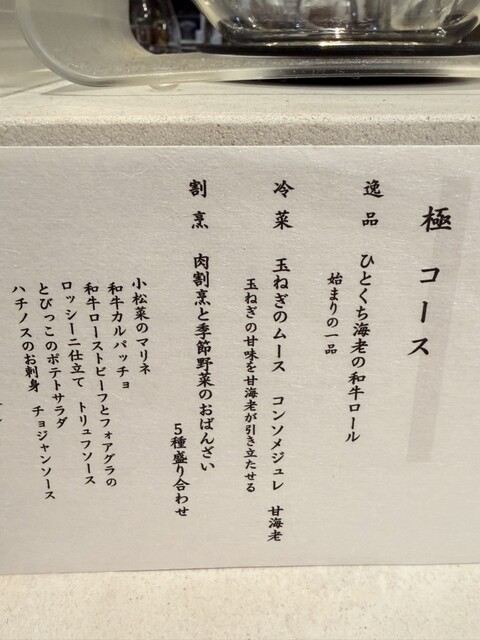 極 コース
逸品 ひとくち海老の和牛ロール
始まりの一品
冷菜 玉ねぎのムース コンソメジュレ 甘海老
玉ねぎの甘味を甘海老が引き立たせる
割烹 肉割烹と季節野菜のおばんざい
5種盛り合わせ
小松菜のマリネ
和牛カルパッチョ
和牛ローストビーフとフォアグラの
ロッシーニ仕立て トリュフソース
とびっこのポテトサラダ
ハチノスのお刺身 チョジャンソース